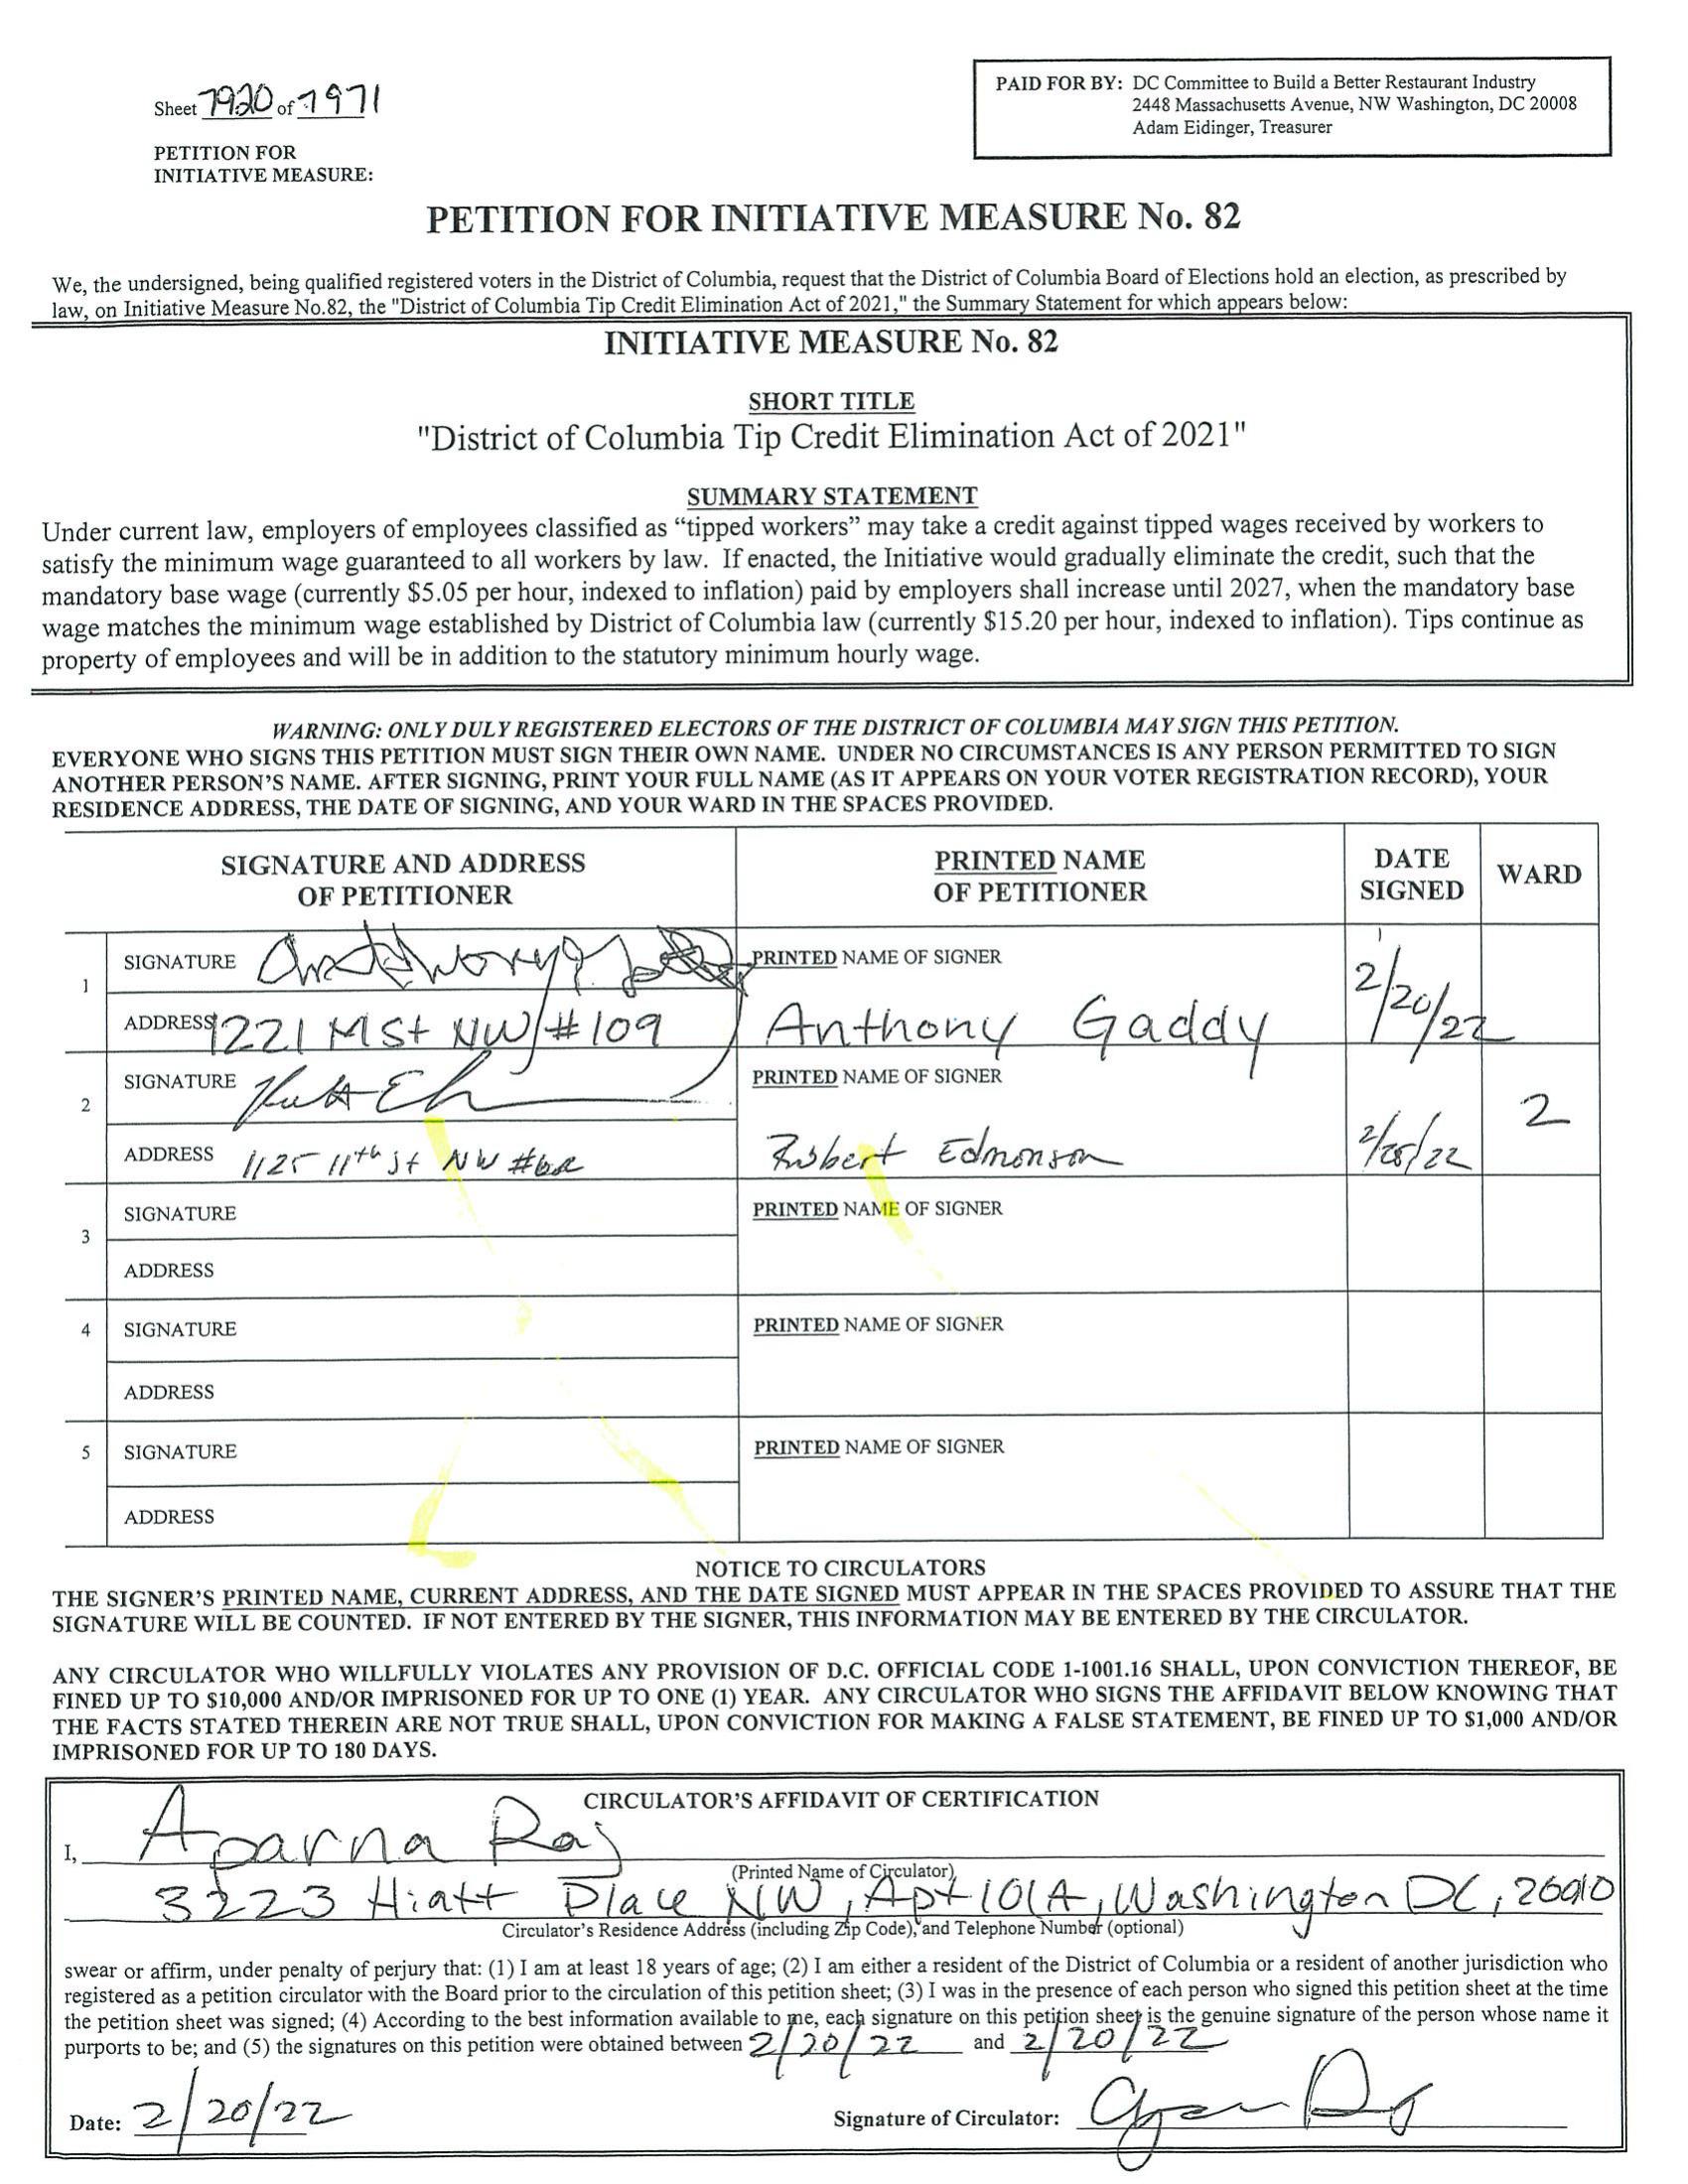 Sheet 7920 of 7971
PAID FOR BY: DC Committee to Build a Better Restaurant Industry
2448 Massachusetts Avenue, NW Washington, DC 20008
Adam Eidinger, Treasurer
PETITION FOR
INITIATIVE MEASURE:
PETITION FOR INITIATIVE MEASURE No. 82
We, the undersigned, being qualified registered voters in the District of Columbia, request that the District of Columbia Board of Elections hold an election, as prescribed by
law, on Initiative Measure No.82, the "District of Columbia Tip Credit Elimination Act of 2021," the Summary Statement for which appears below:
INITIATIVE MEASURE No. 82
SHORT TITLE
"District of Columbia Tip Credit Elimination Act of 2021"
SUMMARY STATEMENT
Under current law, employers of employees classified as “tipped workers” may take a credit against tipped wages received by workers to
satisfy the minimum wage guaranteed to all workers by law. If enacted, the Initiative would gradually eliminate the credit, such that the
mandatory base wage (currently $5.05 per hour, indexed to inflation) paid by employers shall increase until 2027, when the mandatory base
wage matches the minimum wage established by District of Columbia law (currently $15.20 per hour, indexed to inflation). Tips continue as
property of employees and will be in addition to the statutory minimum hourly wage.
WARNING: ONLY DULY REGISTERED ELECTORS OF THE DISTRICT OF COLUMBIA MAY SIGN THIS PETITION.
EVERYONE WHO SIGNS THIS PETITION MUST SIGN THEIR OWN NAME. UNDER NO CIRCUMSTANCES IS ANY PERSON PERMITTED TO SIGN
ANOTHER PERSON’S NAME. AFTER SIGNING, PRINT YOUR FULL NAME (AS IT APPEARS ON YOUR VOTER REGISTRATION RECORD), YOUR
RESIDENCE ADDRESS, THE DATE OF SIGNING, AND YOUR WARD IN THE SPACES PROVIDED.
SIGNATURE AND ADDRESS
OF PETITIONER
PRINTED NAME
OF PETITIONER
DATE
SIGNED
WARD
1
SIGNATURE Anthony
PRINTED NAME OF SIGNER
ADDRESS 1221 M St NW #109
Anthony Gaddy
2/20/22
2
SIGNATURE
PRINTED NAME OF SIGNER
ADDRESS 1125 11th St NW
Robert Edmonson
2/22
2
3
SIGNATURE
PRINTED NAME OF SIGNER
ADDRESS
4
SIGNATURE
PRINTED NAME OF SIGNER
ADDRESS
5
SIGNATURE
PRINTED NAME OF SIGNER
ADDRESS
NOTICE TO CIRCULATORS
THE SIGNER’S PRINTED NAME, CURRENT ADDRESS, AND THE DATE SIGNED MUST APPEAR IN THE SPACES PROVIDED TO ASSURE THAT THE
SIGNATURE WILL BE COUNTED. IF NOT ENTERED BY THE SIGNER, THIS INFORMATION MAY BE ENTERED BY THE CIRCULATOR.
ANY CIRCULATOR WHO WILLFULLY VIOLATES ANY PROVISION OF D.C. OFFICIAL CODE 1-1001.16 SHALL, UPON CONVICTION THEREOF, BE
FINED UP TO $10,000 AND/OR IMPRISONED FOR UP TO ONE (1) YEAR. ANY CIRCULATOR WHO SIGNS THE AFFIDAVIT BELOW KNOWING THAT
THE FACTS STATED THEREIN ARE NOT TRUE SHALL, UPON CONVICTION FOR MAKING A FALSE STATEMENT, BE FINED UP TO $1,000 AND/OR
IMPRISONED FOR UP TO 180 DAYS.
CIRCULATOR’S AFFIDAVIT OF CERTIFICATION
I, Aparna Raj
(Printed Name of Circulator)
3223 Hiatt Place NW, Apt 101A, Washington DC, 20010
Circulator’s Residence Address (including Zip Code), and Telephone Number (optional)
swear or affirm, under penalty of perjury that: (1) I am at least 18 years of age; (2) I am either a resident of the District of Columbia or a resident of another jurisdiction who
registered as a petition circulator with the Board prior to the circulation of this petition sheet; (3) I was in the presence of each person who signed this petition sheet at the time
the petition sheet was signed; (4) According to the best information available to me, each signature on this petition sheet is the genuine signature of the person whose name it
purports to be; and (5) the signatures on this petition were obtained between 2/20/22 and 2/20/22
Date: 2/20/22
Signature of Circulator: